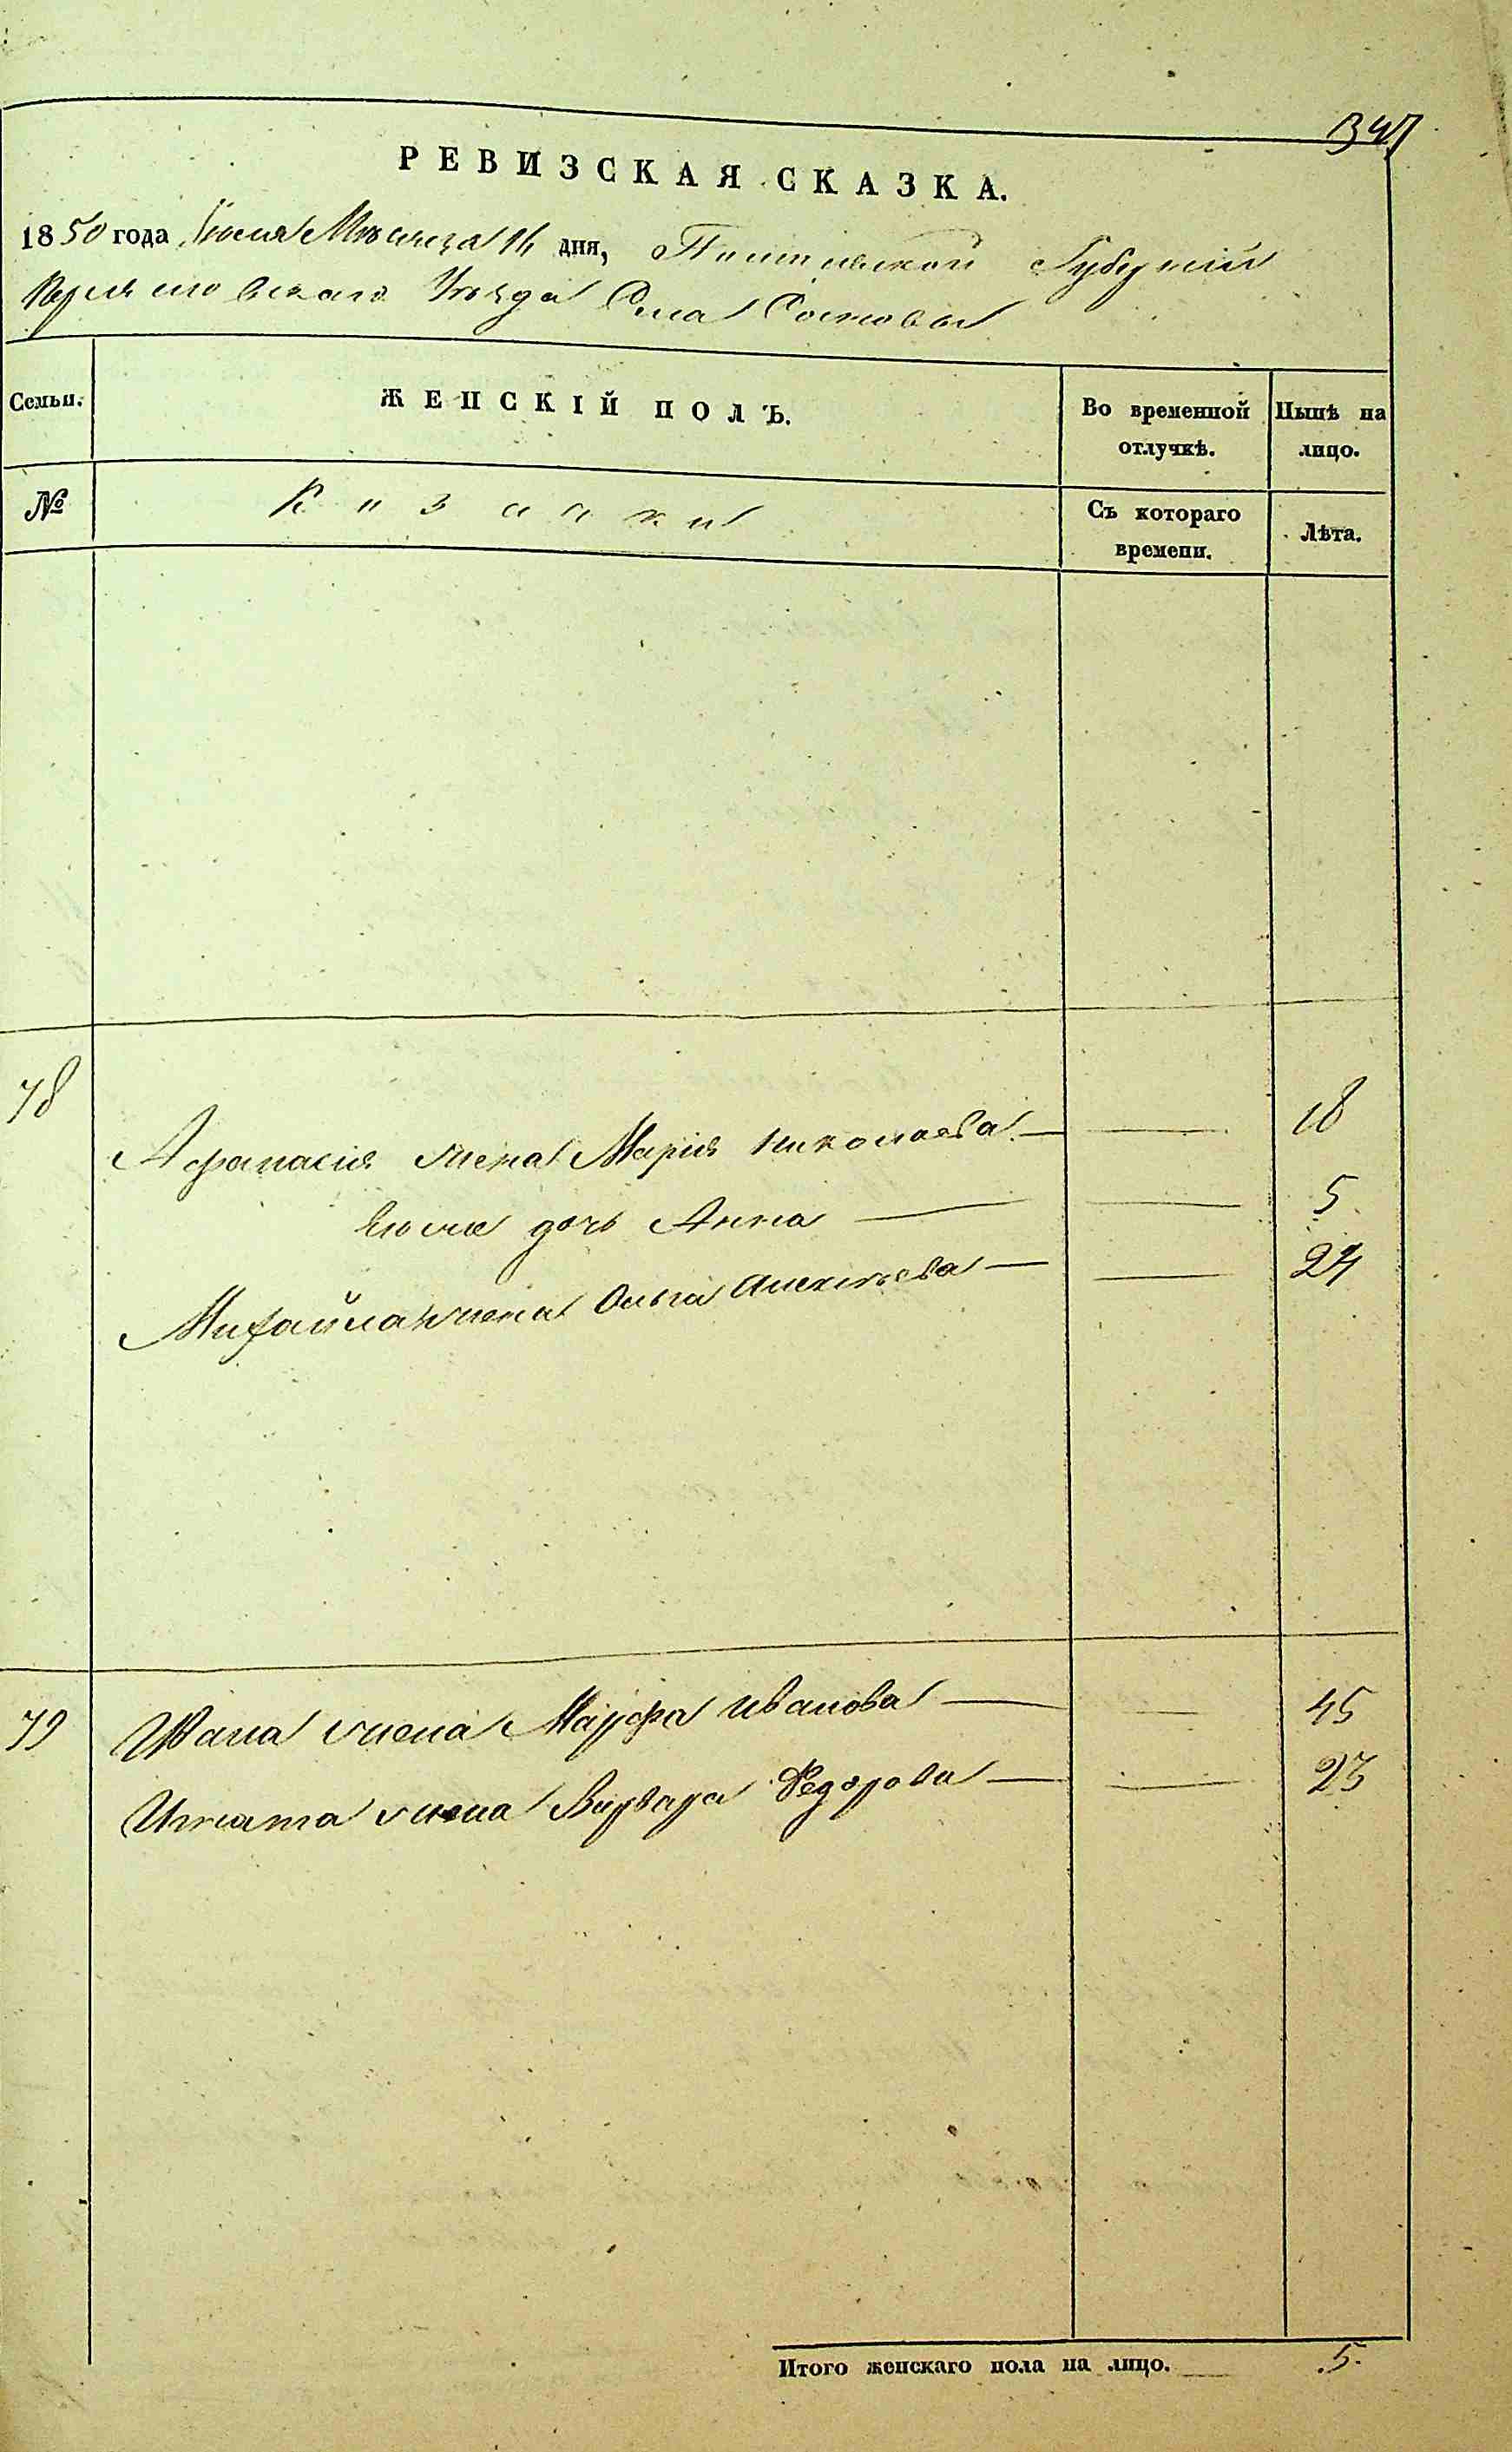 347
РЕВИЗСКАЯ СКАЗКА.
1850 года, Іюля Месяца 16 дня, Полтавской Губерніи
Кременчовскаго Уезда Села
Семьи. ЖЕНСКІЙ ПОЛЪ. Во временной отлучкѣ. Нынѣ на лицо.
№ Козачки Съ котораго времени. Лѣта.
78
Афанасия жена Марія Николаева — — 18
дочь Анна — — 5
Михайла жена Ольга Алексеева — — 24
79 Ивана жена Марфа Иванова — — 45
Игната жена Варвара Федорова — — 23
Итого женскаго пола на лицо. 5.